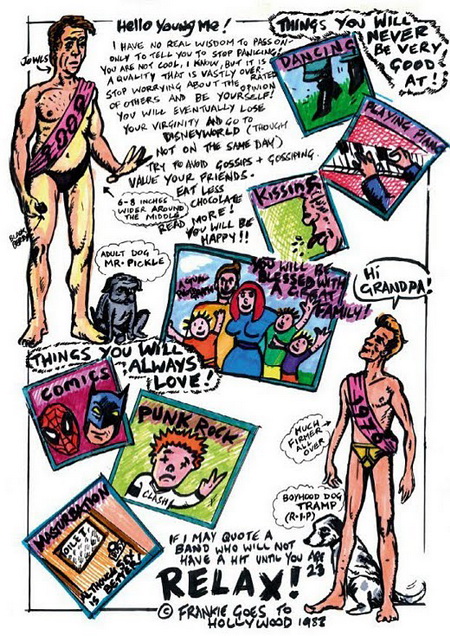 Hello Young Me!
JOWLS
I HAVE NO REAL WISDOM TO PASS ON
ONLY TO TELL YOU TO STOP PANICKING!
YOU ARE NOT COOL, I KNOW, BUT IT IS
A QUALITY THAT IS VASTLY OVER-
RATED
STOP WORRYING ABOUT THE OPINION
OF OTHERS AND BE YOURSELF!
YOU WILL EVENTUALLY LOSE
YOUR VIRGINITY AND GO TO
DISNEYWORLD (THOUGH
NOT ON THE SAME DAY)
TRY TO AVOID GOSSIPS + GOSSIPING.
VALUE YOUR FRIENDS.
EAT LESS
CHOCOLATE
READ MORE!
YOU WILL BE
HAPPY!!
6-8 INCHES
WIDER AROUND
THE MIDDLE
ADULT DOG
MR. PICKLE
THINGS YOU WILL
NEVER
BE VERY
GOOD
AT!
DANCING
PLAYING PIANO
KISSING
YOU WILL BE
BLESSED WITH
A GREAT
FAMILY!
Hi
GRANDPA!
THINGS YOU WILL
ALWAYS
LOVE!
COMICS
PUNK ROCK
CLASH
MASTURBATION
TOILET
ALTHOUGH SEX
IS BETTER
MUCH
FIRMER
ALL
OVER
BOYHOOD DOG
TRAMP
(R.I.P)
IF I MAY QUOTE A
BAND WHO WILL NOT
HAVE A HIT UNTIL YOU ARE
23
RELAX!
© FRANKIE GOES TO
HOLLYWOOD 1983